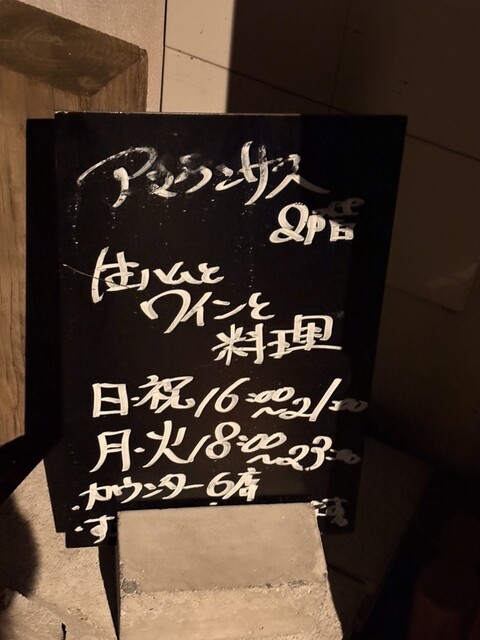 アマランサス
2階
生ハムと
ワインと
料理
日・祝 16:00〜21:00
月・火 18:00〜23:00
カウンター6席